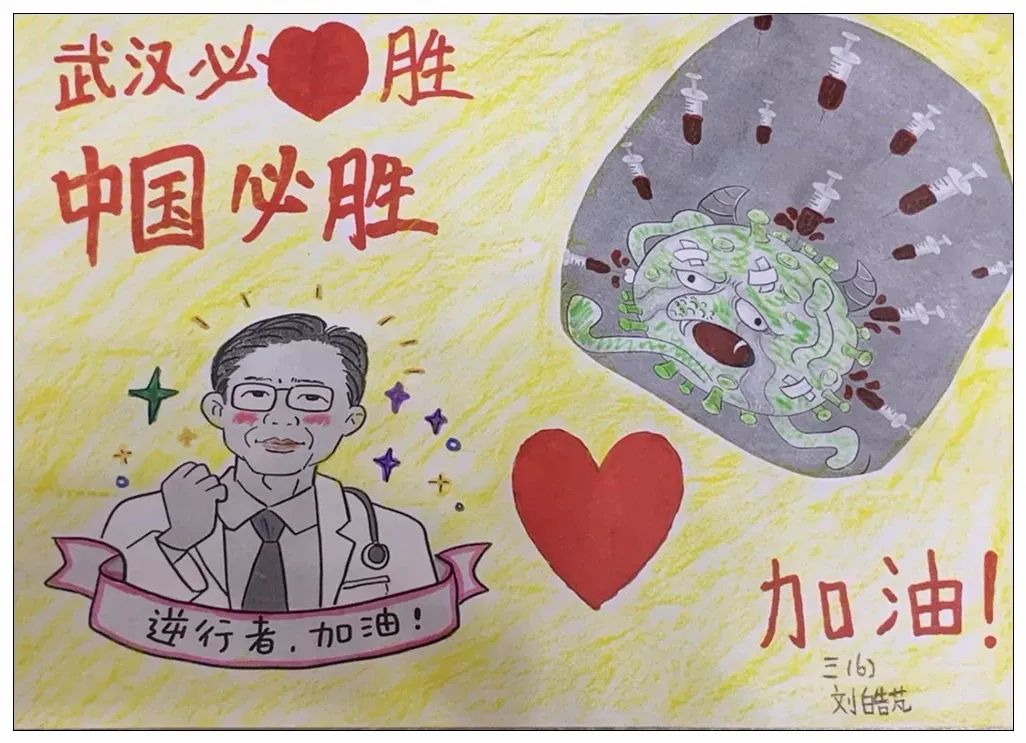 武汉必胜
中国必胜
逆行者.加油!
加油!
三(6)
刘皓芃